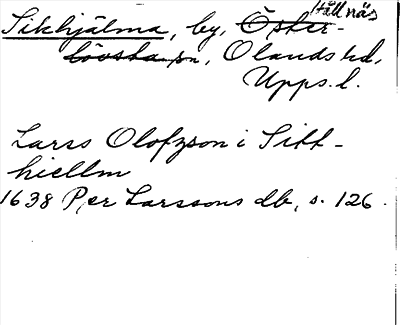 Sikhjälma, by, Öster- Hållnäs
lövsta sn, Olands hd,
Upps. l.
Larss Olofzson i Sitt-
hiellm
1638 Per Larssons db, s. 126.